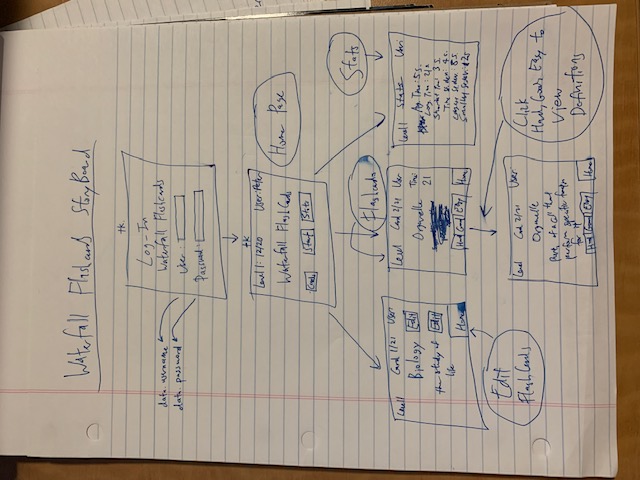 Waterfall Flashcards StoryBoard
tk
Log-In
Waterfall Flashcards
data.username
data.password
User:
Password:
tk
Level 1: 12/20 User: Peter
Waterfall FlashCards
Cards Start Stats
Home Page
Flashcards
Stats
Level 1 Card 1/21 User
Biology Edit
the study of Edit
life
Home
Level Card 2/21 User
Organelle Time:
21
Hard Good Easy Home
Level 1 Stats User
Avg Time: 5s.
Long. Time: 21s
Shortest Time 3 s.
Time St. dev: 4s.
Largest St. dev: 8s.
Smallest St. dev: 2s
Edit
FlashCards
Level Card 2/21 User
Organelle
Parts of a cell that
perform specific
for it
Hard Good Easy Home
Click
Hard, Good, Easy to
View
Definitions